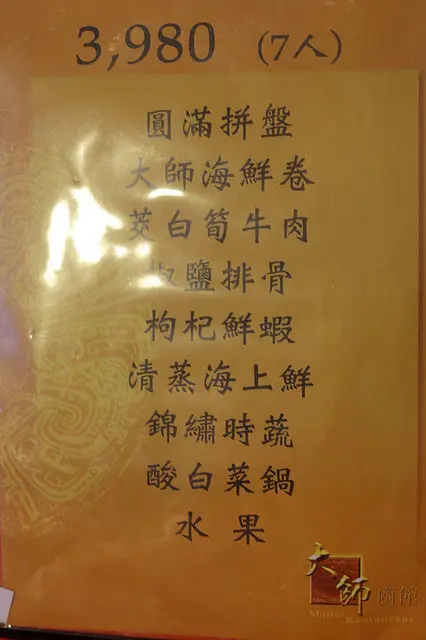 3,980 (7人)
圓滿拼盤
大師海鮮卷
茭白筍牛肉
椒鹽排骨
枸杞鮮蝦
清蒸海上鮮
錦繡時蔬
酸白菜鍋
水果
大師
Master Restaurant